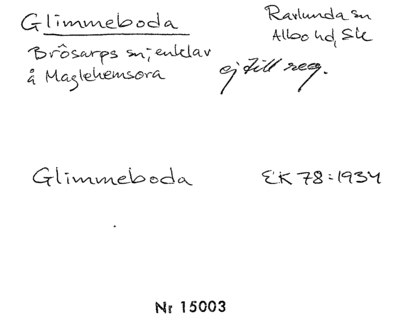 Glimmeboda
Ravlunda sn
Albo hd, Sk
Brösarps sn; enklav
å Maglehemsora
ej till reg.
Glimmeboda
EK 78:1934
Nr 15003